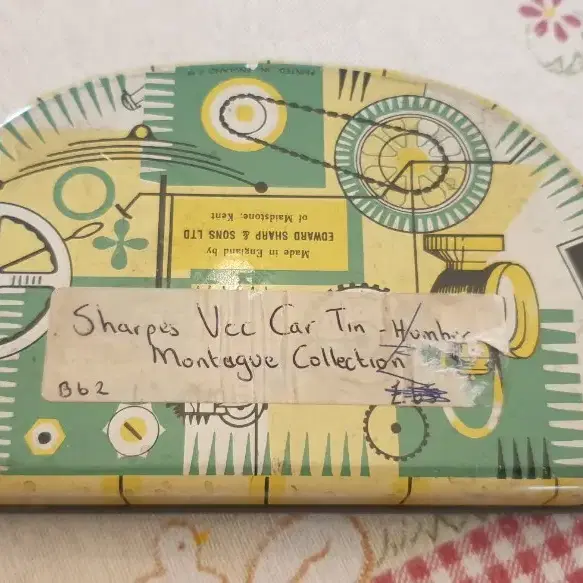 PRINTED IN ENGLAND
Made in England by
EDWARD SHARP & SONS LTD
of Maidstone, Kent
Sharpes Vcc Car Tin - Humber
Montague Collection
B62